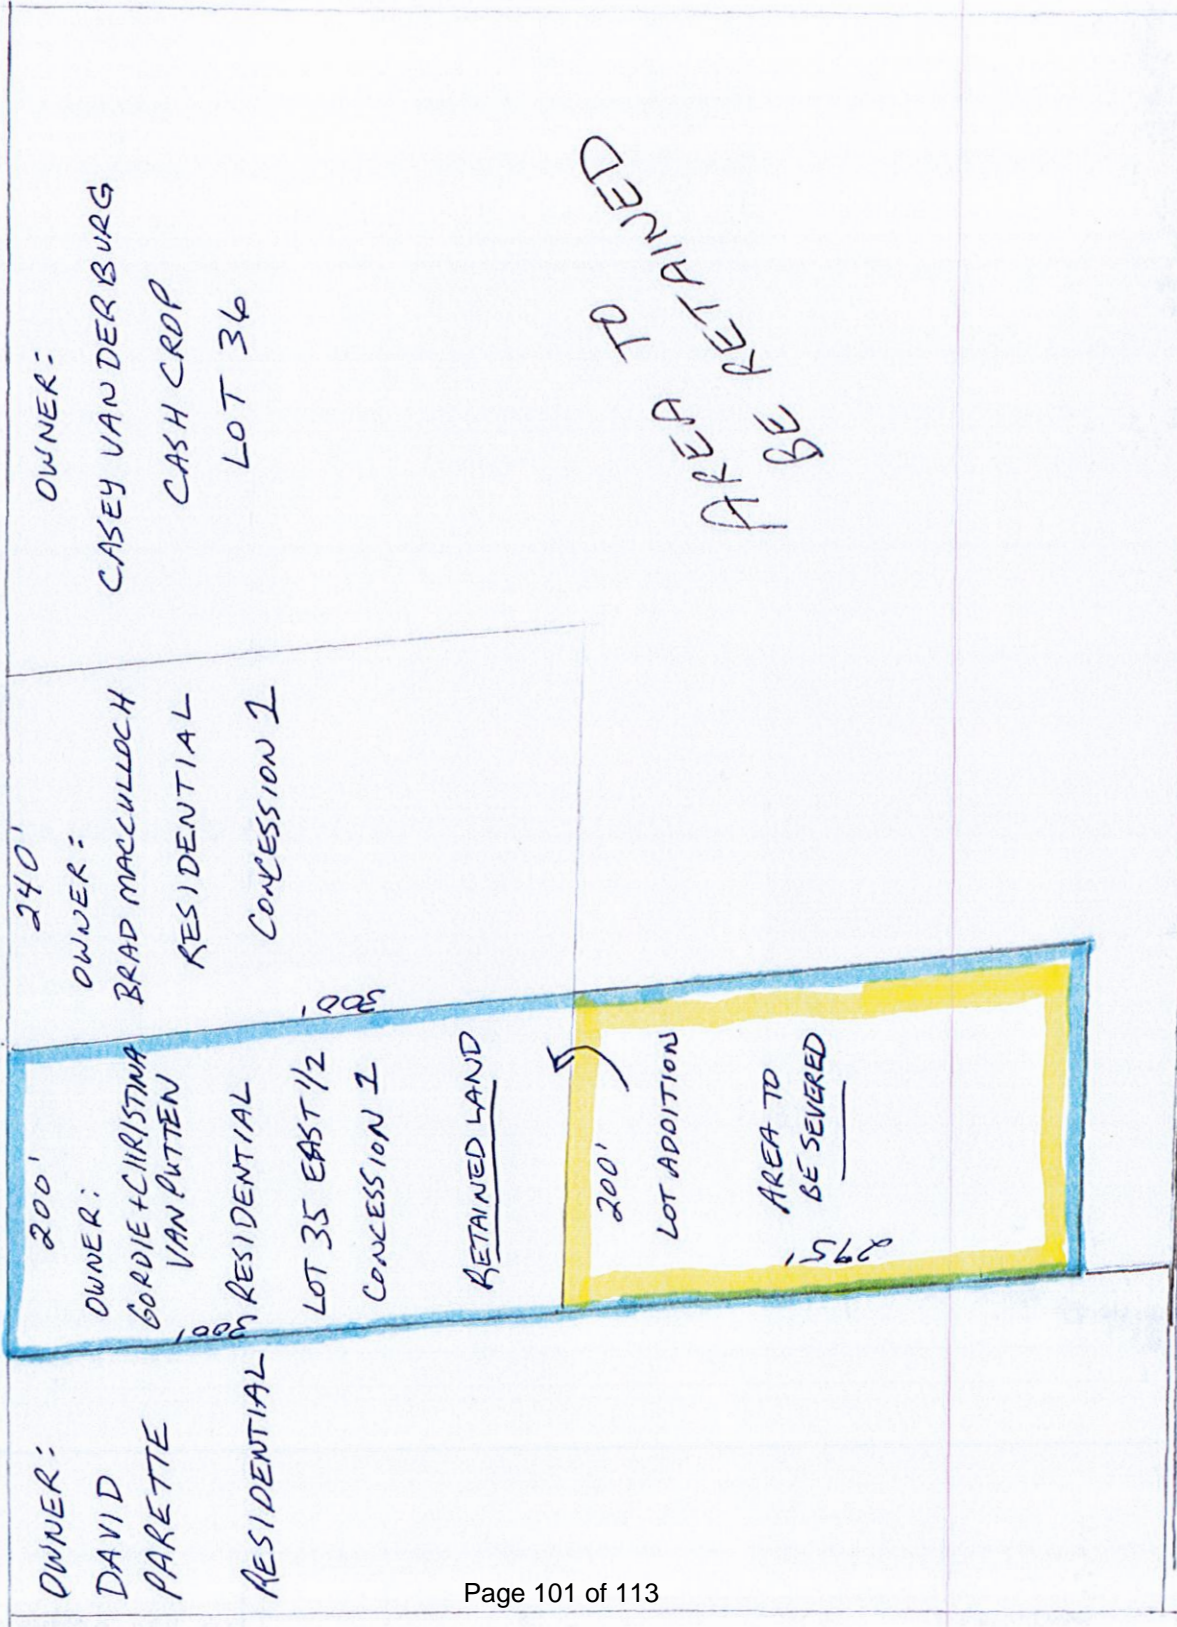 OWNER:
DAVID
PARETTE
RESIDENTIAL
200'
OWNER:
GORDIE + CHRISTINA
VAN PUTTEN
RESIDENTIAL
300'
LOT 35 EAST 1/2
CONCESSION 1
300'
RETAINED LAND
200'
LOT ADDITION
AREA TO
BE SEVERED
295'
240'
OWNER:
BRAD MACCULLOCH
RESIDENTIAL
CONCESSION 1
OWNER:
CASEY VANDERBURG
CASH CROP
LOT 36
AREA TO
BE RETAINED
Page 101 of 113